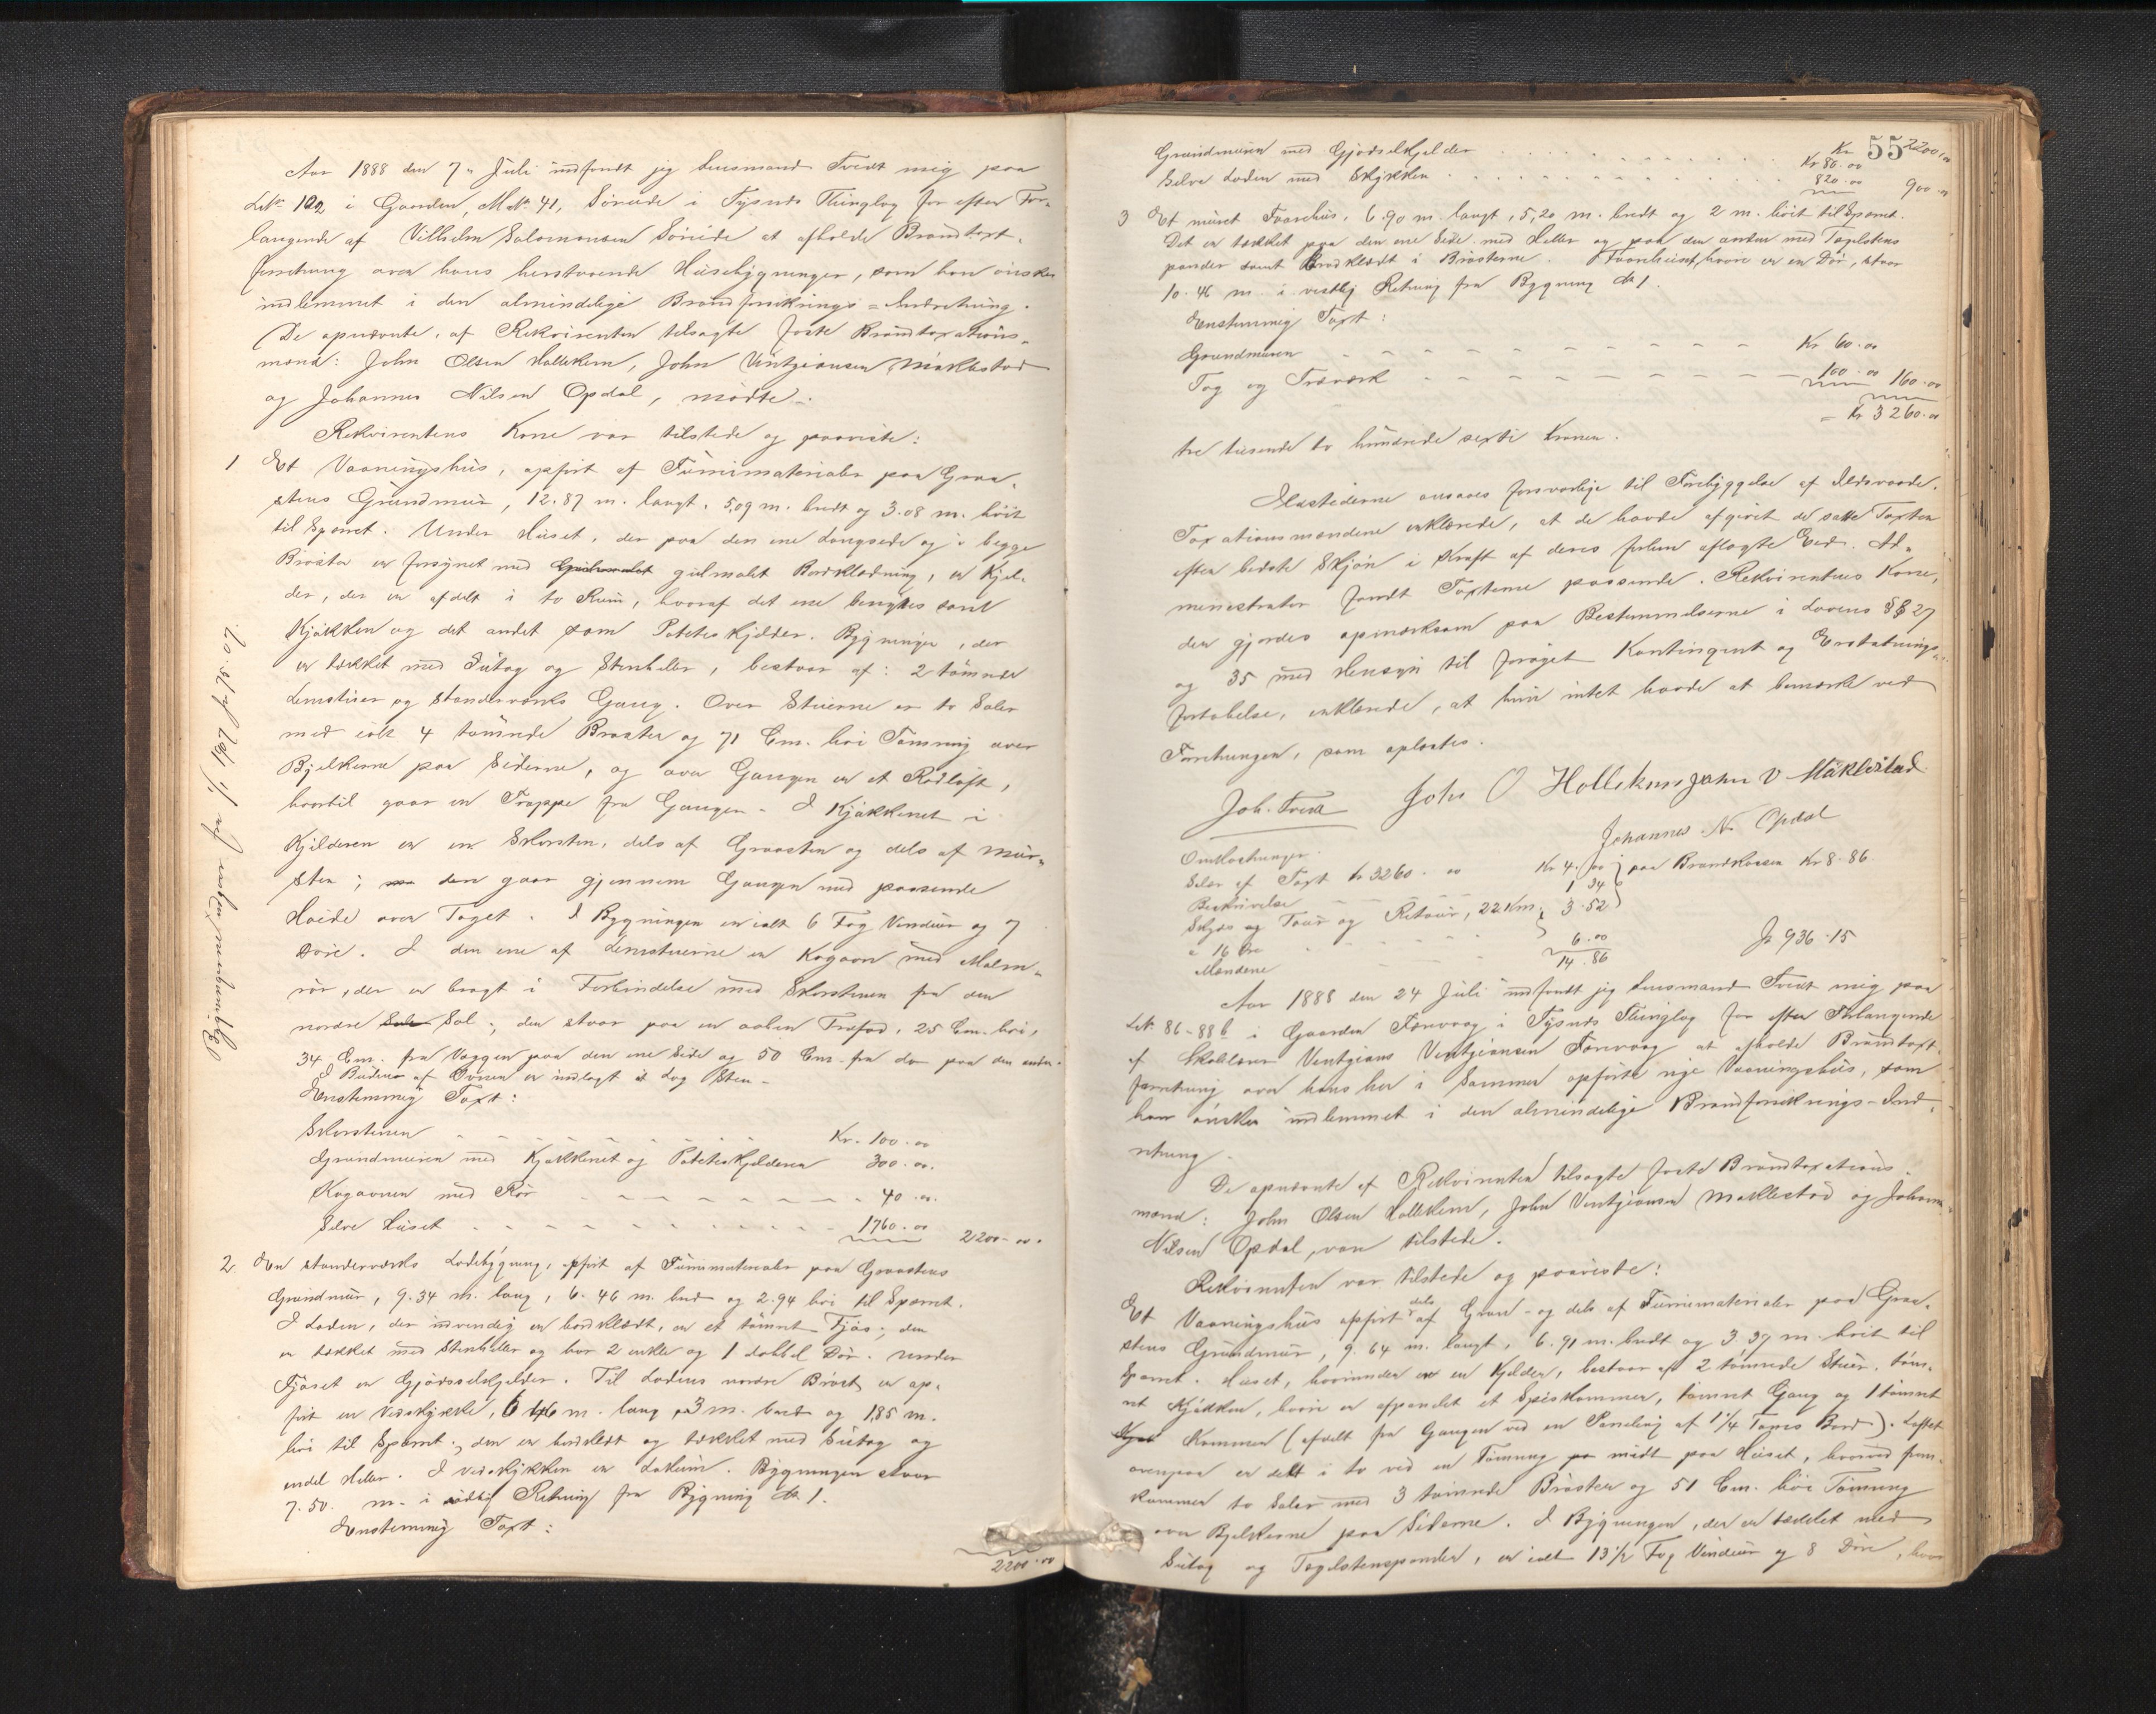 Aar 1888 den 7. Juli indfandt jeg Lensmand Tvedt mig paa
Litr. 102 i Gaarden, Matr. 41, Söreide i Tysnæs Thinglag for efter For-
langende af Vilhelm Salomonsen Söreide at afholde Brandtaxt-
forretning over hans herstaaende Husebygninger, som han önsker
indlemmet i den almindelige Brandforsikrings-Indretning.
De opnævnte, af Rekvirenten tilsagte faste Brandtaxations-
mænd: John Olsen Hallekem, John Vintgiansen Mæklestad
og Johannes Nilsen Opdal, mödte.
Rekvirentens Kone var tilstede og paaviste:
1 Et Vaaningshus, opfört af Furumaterialer paa Graa-
stens Grundmur, 12.87 m. langt, 5,09 m. bredt og 3.08 m. höit
til Spærret. Under Huset, der paa den ene Langside og i begge
Bröster er forsynet med gulmalet Bordklædning, er Kjel-
der, der er afdelt i to Rum, hvoraf det ene benyttes som
Kjökken og det andet som Poteteskjelder. Bygningen, der
er tækket med Sutag og Stenheller, bestaar af: 2 tömrede
Lemstuer og Standerværks Gang. Over Stuerne er to Saler
med ialt 4 tömrede Bröster og 71 Cm. höi Tömring over
Bjelkerne paa Siderne, og over Gangen er et Rodloft,
hvortil gaar en Trappe fra Gangen. I Kjökkenet i
Kjelderen er en Skorsten, dels af Graasten og dels af Mur-
sten; den gaar gjennem Gangen med passende
Höide over Taget. I Bygningen er ialt 6 Fag Vinduer og 7
Döre. I den ene af Lemstuerne er Kogeovn med Malm-
rör, der er bragt i Forbindelse med Skorstenen fra den
nordre Sal; den staar paa en aaben Træfod, 25 Cm. höi,
34 Cm. fra Væggen paa den ene Side og 50 Cm. fra do paa den anden.
I Bunden af Ovnen er indlagt et Lag Sten.
Enstemmig Taxt:
Skorstenen Kr. 100.00
Grundmuren med Kjökkenet og Poteteskjelderen 300.00.
Kogeovnen med Rör 40.00.
Selve Huset 1760.00 2200-00.
2 En standerværks Ladebygning, opfört af Furumaterialer paa Graastens
Grundmur, 9.34 m. lang, 6.46 m. bred og 2.94 höi til Spærret.
I Laden, der indvendig er bordklædt, er et tömret Fjös; den
er tækket med Stenheller og har 2 enkle og 1 dobbel Dör. Under
Fjöset er Gjödselskjelder. Til Ladens nordre Bröst er op-
fört en Vedskykke, 6.46 m. lang, 3 m. bred og 1,85 m.
höi til Spærret; den er bordklædt og tækket med Sutag og
endel Heller. I Vedskykken er Lokum. Bygningen staar
7.50. m. i Retning fra Bygning No 1.
Enstemmig Taxt:
2200.00
Bygningsnummer 1, 2 og 3
55
Kr 2200.00
Grundmuren med Gjödselkjelder Kr 80.00
Selve Laden med Skykken 820.00 900.00
3 Et muret Tværhus, 6.90 m. langt, 5,20 m. bredt og 2 m. höit til Spærret.
Det er tækket paa den ene Side med Heller og paa den anden med Taglstens
pander samt Bordklædt i Brösterne. hvori er en Dör, staar
10.46 m. i vestlig Retning fra Bygning No 1.
Enstemmig Taxt:
Grundmuren Kr 60.00
Tag og Træværk 100.00 160.00
= Kr 3260.00
tre tusende to hundrede sexti Kroner.
Ildstederne ansaaes forsvarlige til Forebyggelse af Ildsvaade.
Taxationsmændene erklærede, at de havde afgivet de satte Taxter
efter bedste Skjön i Kraft af deres forhen aflagte Eed. Ad-
ministrator fandt Taxterne passende. Rekvirentens Kone,
der gjordes opmærksom paa Bestemmelserne i Lovens §§ 27
og 35 med Hensyn til foröget Kontingent og Erstatnings-
fortabelse, erklærede, at hun intet havde at bemærke ved
Forretningen, som oplæstes.
Joh. Tvedt John O Hallekem John V Mæklestad
Johannes N. Opdal
Omkostninger.
Salær af Taxt kr 3260.00 Kr 4.00 } paa Brandkassen Kr 8.86.
Beskrivelse 1 34
Skyds og Tour og Retour, 22 Km. 3.52
a 16 Öre
Mændene 6.00
14.86
Jr 936-15
Aar 1888 den 24 Juli indfandt jeg Lensmand Tvedt mig paa
Litr. 86-88 b i Gaarden Færevaag i Tysnæs Thinglag for efter Forlangende
af Skolelærer Vintgians Vintgiansen Færevaag at afholde Brandtaxt-
forretning over hans her i Sommer opförte nye Vaaningshus, som
han önsker indlemmet i den almindelige Brandforsikrings-Ind-
retning.
De opnævnte af Rekvirenten tilsagte faste Brandtaxations-
mænd: John Olsen Hallekem, John Vintgiansen Mæklestad og Johannes
Nilsen Opdal, var tilstede.
Rekvirenten var tilstede og paaviste:
Et Vaaningshus opfört dels af Gran- og dels af Furumaterialer paa Graa-
stens Grundmur, 9.64 m. langt, 6.91 m. bredt og 3 37 m. höit til
Spærret. Huset, hvorunder er en Kjelder, bestaar af 2 tömrede Stuer, töm-
ret Kjökken, hvori er afpanelet et Spiskammer, tömret Gang og 1 tömret
Kammer (afdelt fra Gangen ved en Paneling af 1 1/4 Tomes Bord). Loftet
ovenpaa er delt i to ved en Tömring midt paa Huset, hvorved frem-
kommer to Saler med 3 tömrede Bröster og 51 Cm. höi Tömring
over Bjelkerne paa Siderne. I Bygningen, der er tækket med
Sutag og Taglstenspander, er ialt 13 1/2 Fag Vinduer og 8 Döre, hvor